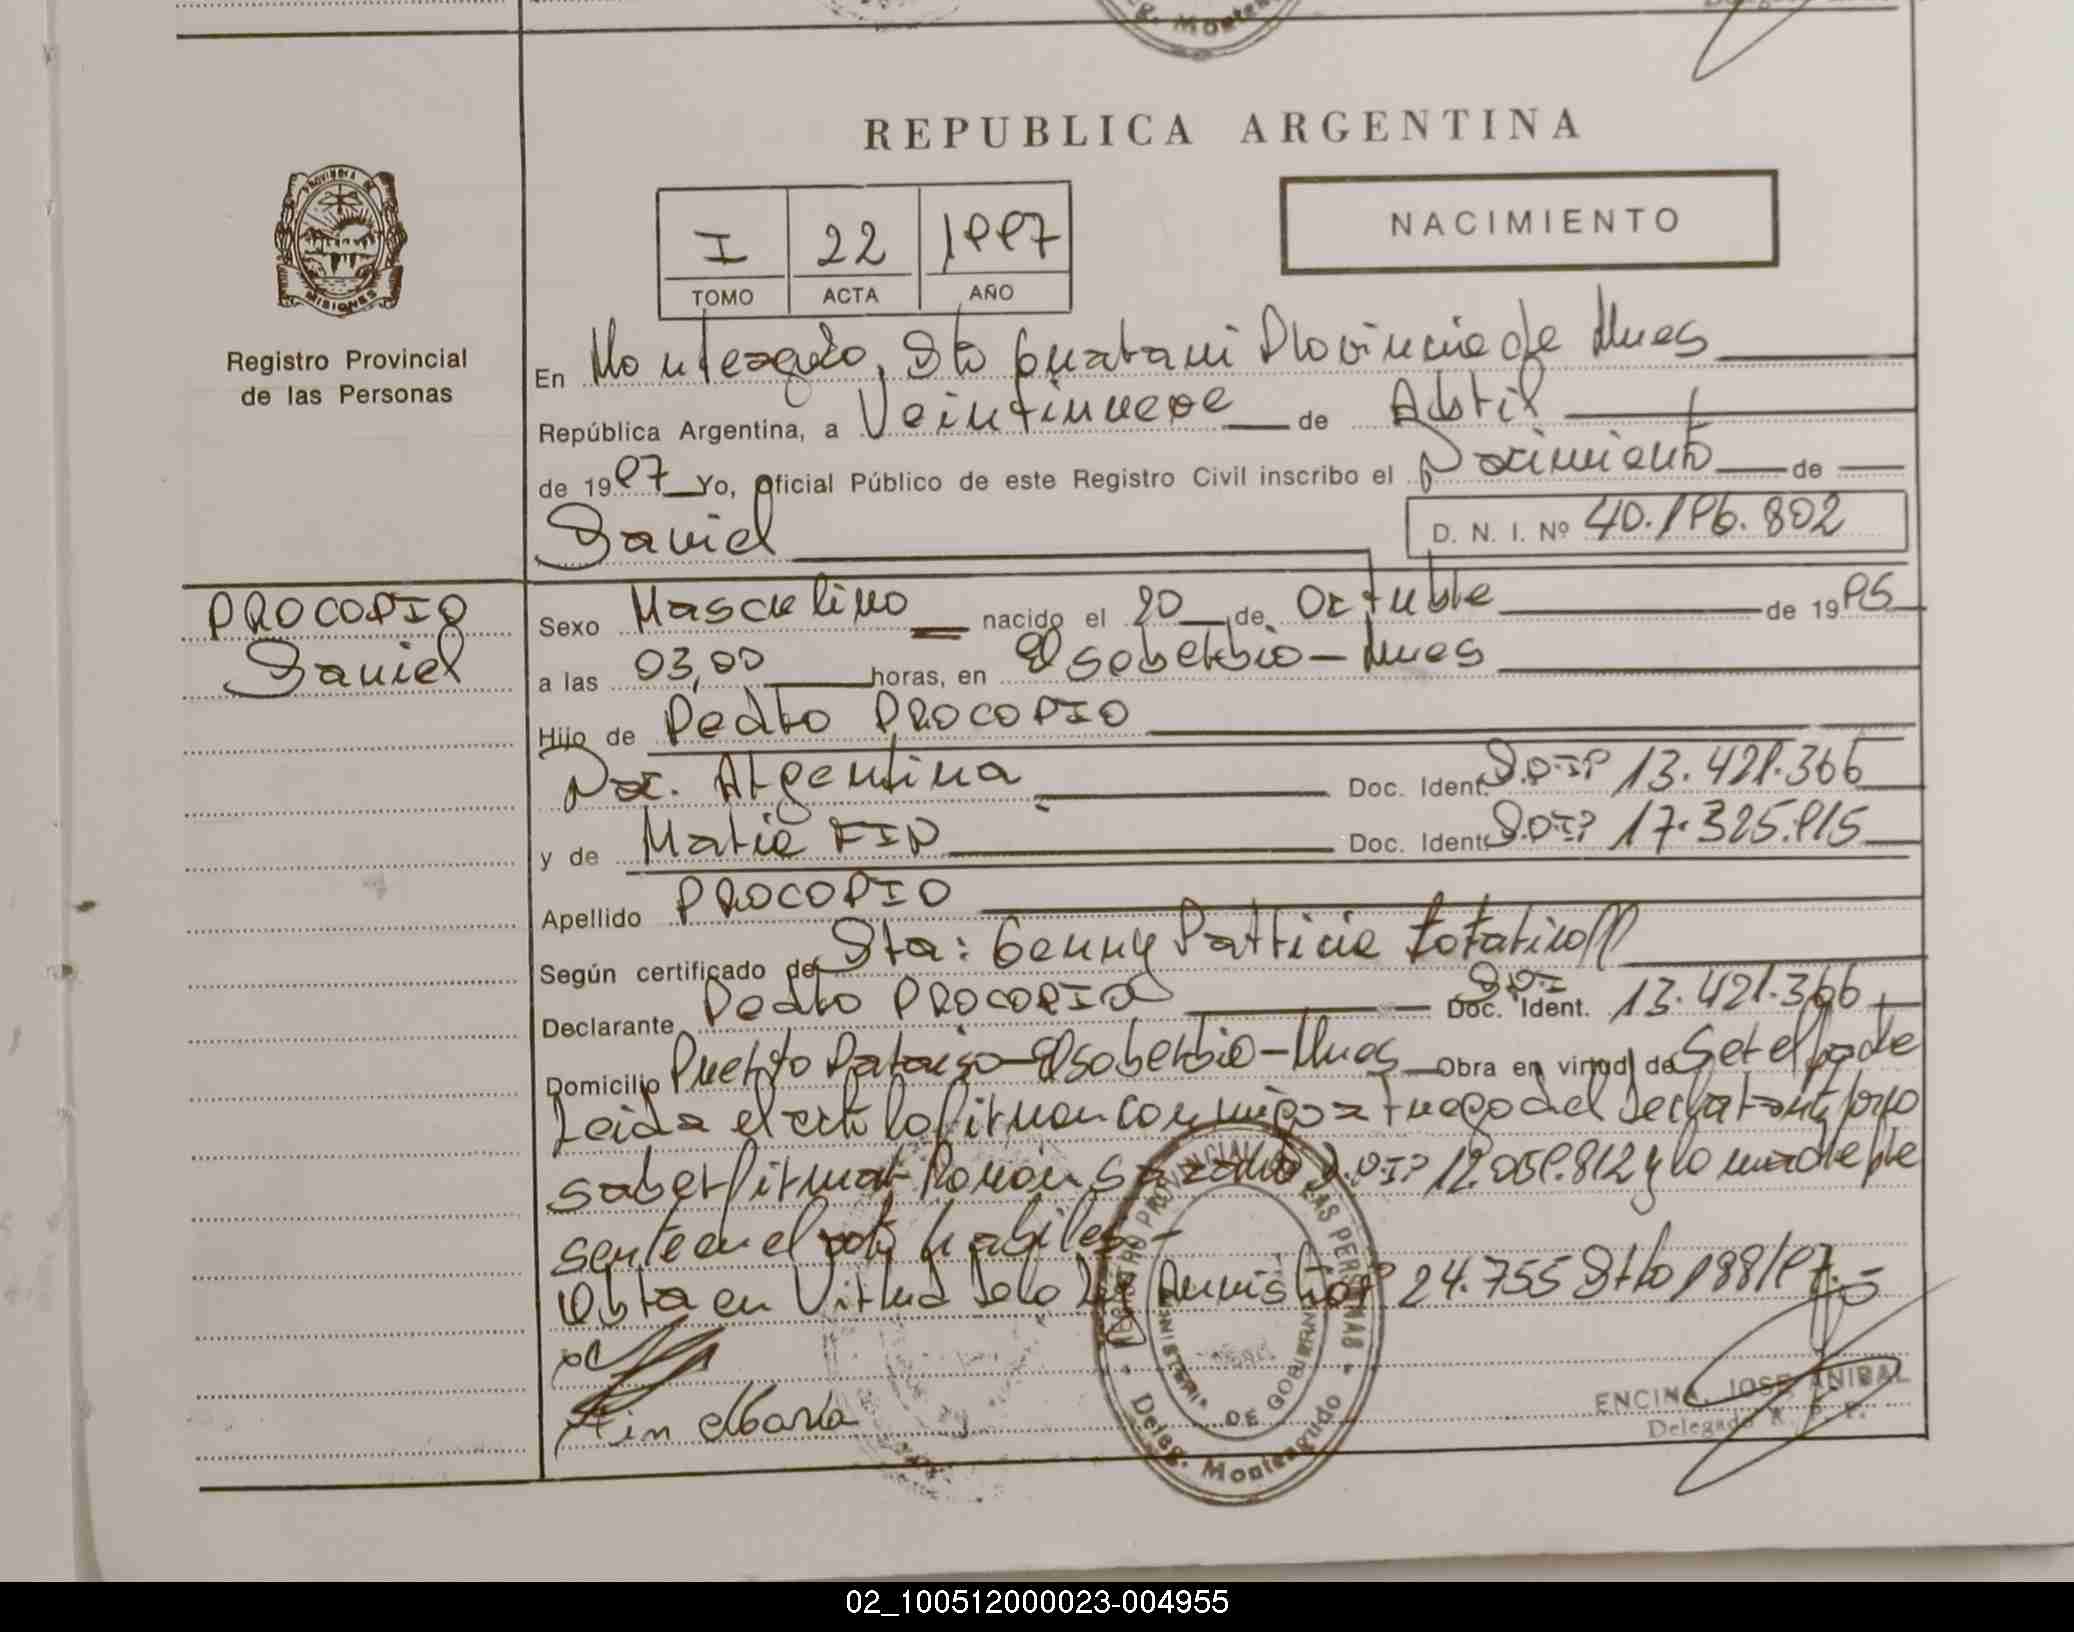 REPUBLICA ARGENTINA
PROVINCIA DE MISIONES
Registro Provincial
de las Personas
I 22 1997
TOMO ACTA AÑO
NACIMIENTO
En Monteagudo, Dto Guarani Provincia de Mnes
República Argentina, a Veintinueve de Abril
de 1997 Yo, Oficial Público de este Registro Civil inscribo el Nacimiento de
Daniel D. N. I. Nº 40.196.802
PROCOPIO
Daniel
Sexo Masculino nacido el 20 de Octubre de 1995
a las 03,00 horas, en El soberbio - Mnes
Hijo de Pedro PROCOPIO
Nac. Argentina Doc. Ident. D.N.I Nº 13.421.366
y de Maria FIN Doc. Ident. D.N.I Nº 17.325.915
Apellido PROCOPIO
Según certificado de Sta: Genny Patricia
Declarante Pedro PROCOPIO D.N.I Doc. Ident. 13.421.366
Domicilio Puerto Paraiso - El soberbio - Mnes Obra en virtud de Ser el padre
Leida el acta la firman conmigo a ruego del Declarante por no
saber firmar Ramón D.N.I Nº 12.059.812 y la madre pre
sente en el acto habiles -
Obra en Virtud de la Ley Amnistia Nº 24.755 Dto 188/97.-
Fin Maria
REGISTRO PROVINCIAL DE LAS PERSONAS
MINISTERIO DE GOBIERNO
Deleg. Monteagudo
ENCINA, JOSE ANIBAL
Delegado R. P. P.
02_100512000023-004955